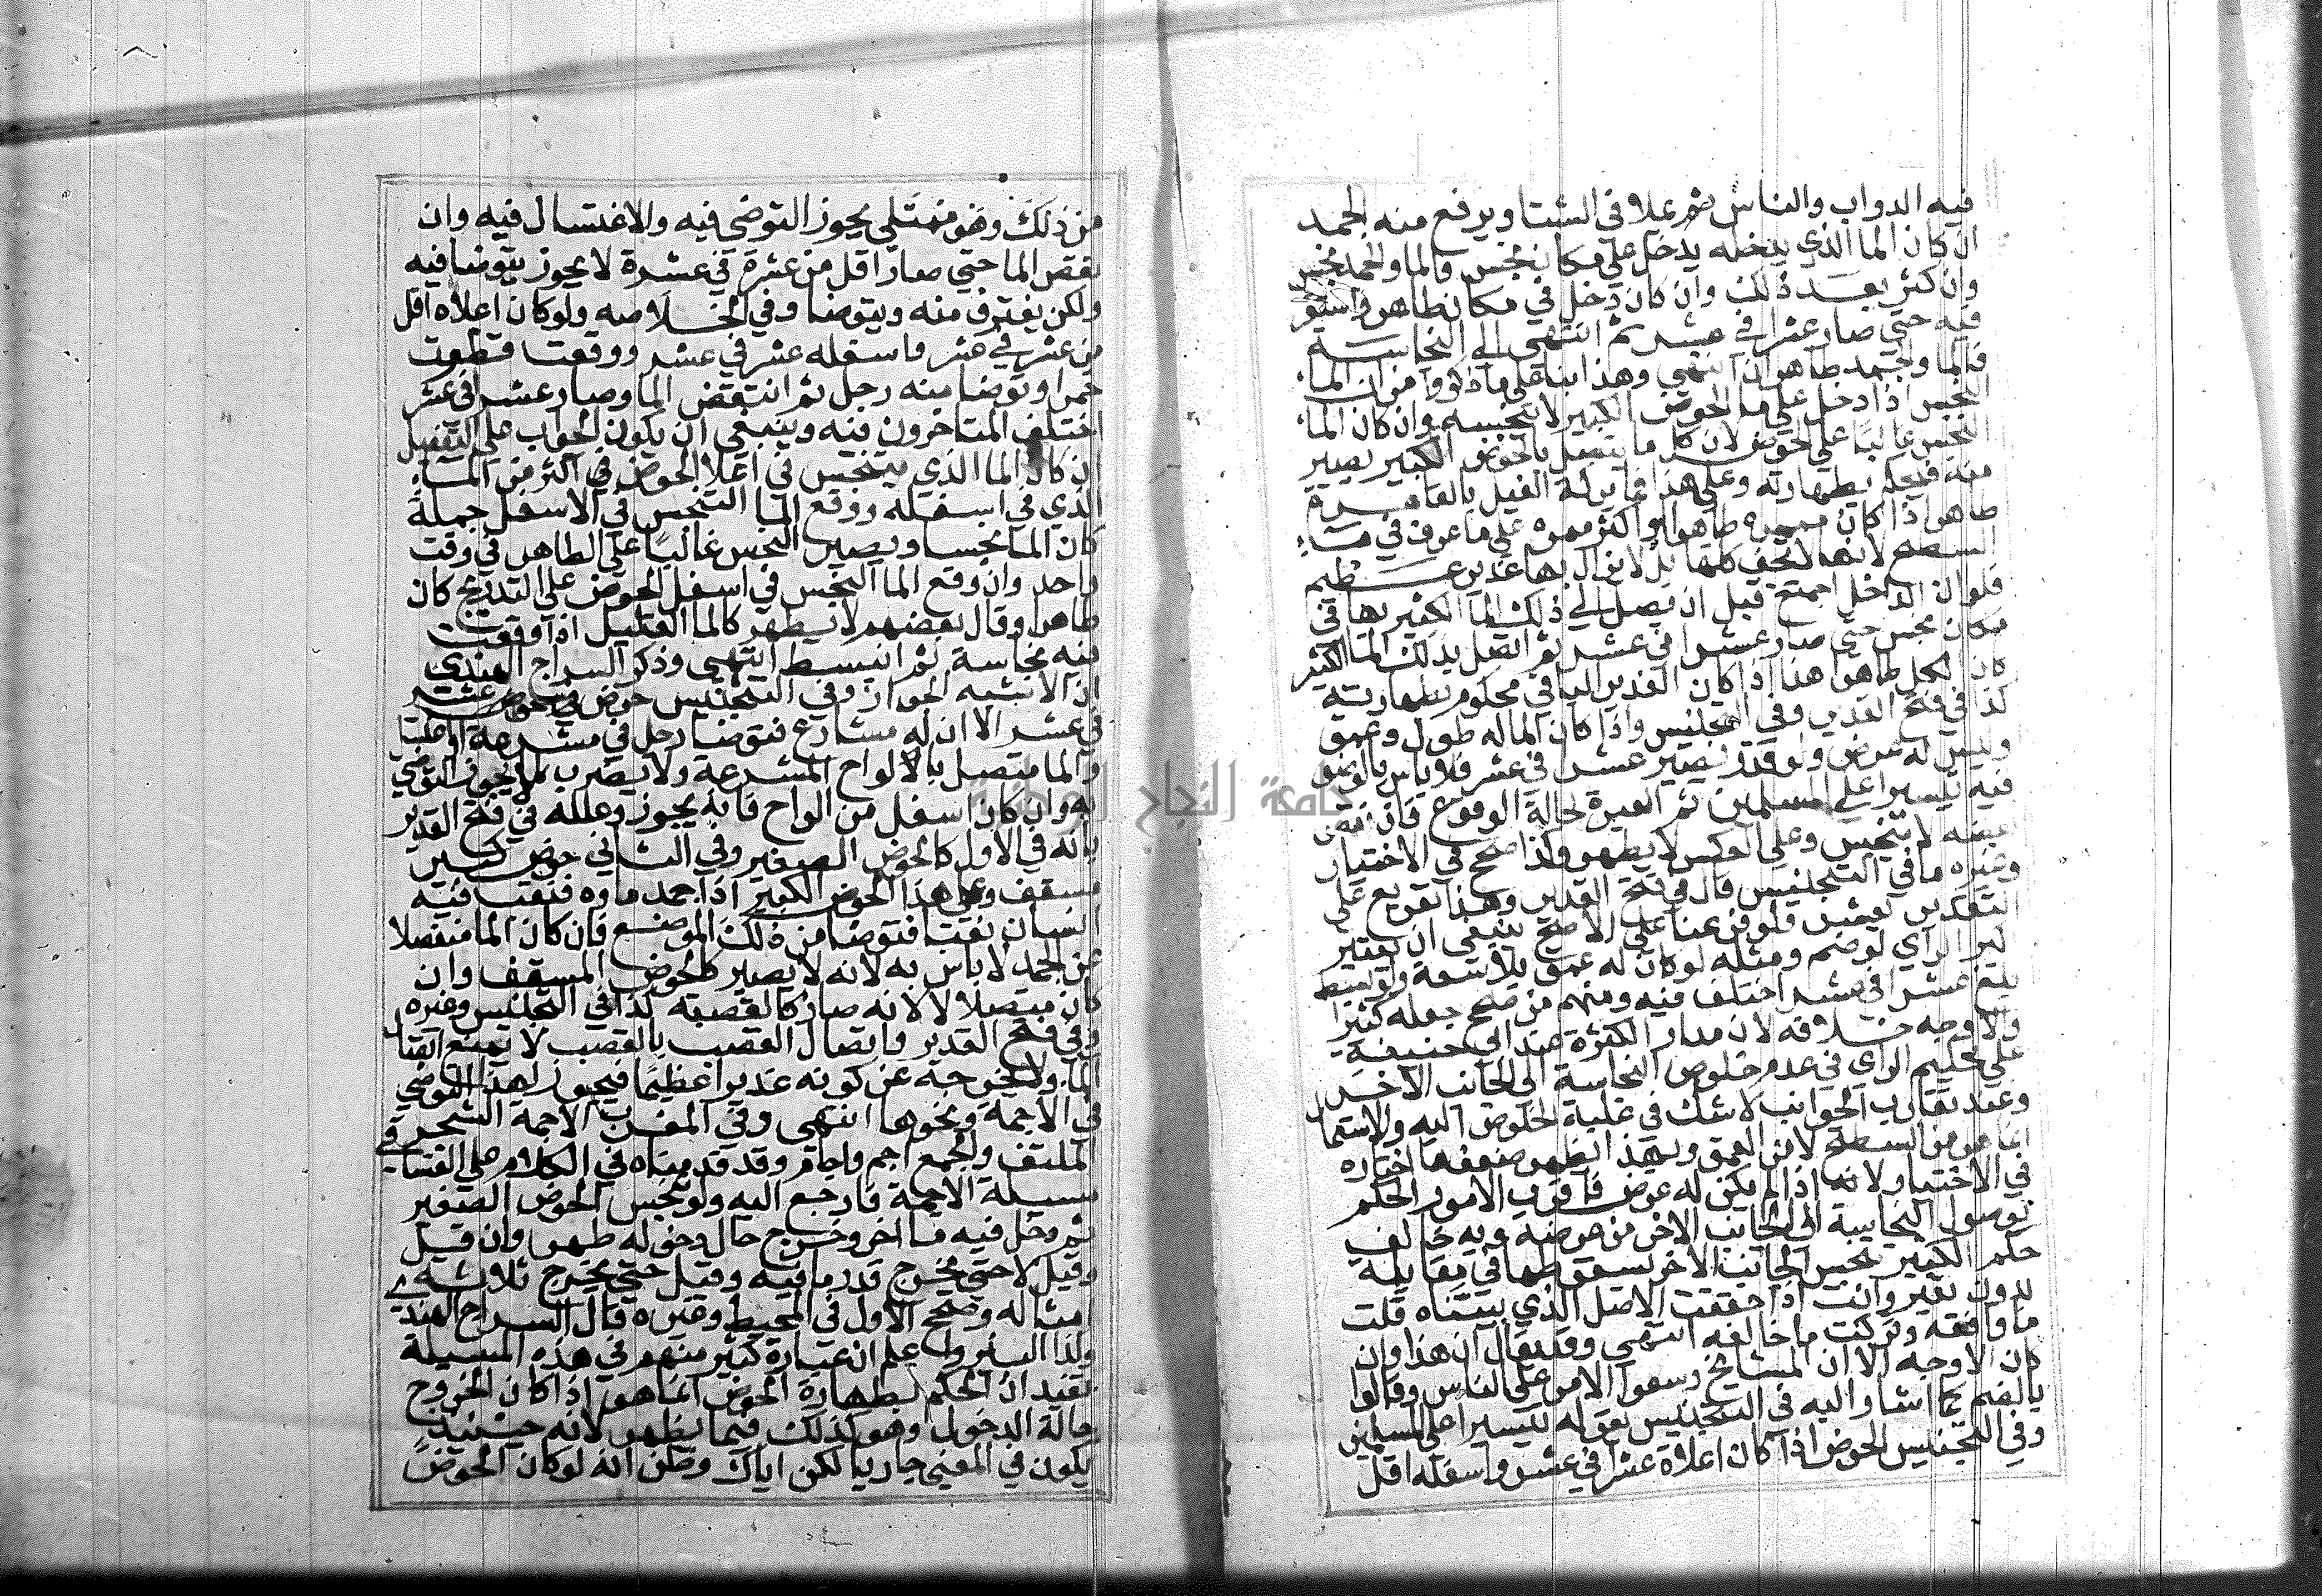 فيه الدواب والناس ثم يملا في الشتا ويرفع منه الجمد
ان كان الما الذي يدخله يدخل على مكان نجس فالما والجمد نجس
وان كثر بعد ذلك وان كان دخل في مكان طاهر واستقر
فيه حتى صار عشرا في عشر ثم انتهى الى النجاسة
فالما والجمد طاهران انتهى وهذا بنا على ما ذكروا من ان الماء
النجس اذا دخل على ما الحوض الكبير لا ينجسه وان كان الماء
النجس غالبا على الحوض لان كل ما يتصل بالحوض الكبير يصير
منه فيحكم بطهارته وعلى هذا فما بركة الفيل بالقاهرة
طاهر اذا كان ممره طاهرا او اكثر ممره على ما عرف في ماء
السطح لانها لا تجف كلها بل لا يزال بها غدير عظيم
فلو ان الداخل اجتمع قبل ان يصل الى ذلك الما الكثير بها في
مكان نجس حتى صار عشرا في عشر ثم اتصل بذلك الما الكثير
كان الكل طاهرا هذا اذا كان الغدير الباقي محكوم بطهارته
كذا في فتح القدير وفي التجنيس واذا كان الما له طول وعمق
وليس له عرض ولو قدر يصير عشرا في عشر فلا باس بالوضو
فيه تيسيرا على المسلمين ثم العبرة لحالة الوقوع فان نقص
بعده لا يتنجس وعلى العكس لا يطهر وكذا صحح في الاختيار
وغيره ما في التجنيس قال في فتح القدير وهذا تفريع على
التقدير بعشر ولو فرعنا على الاصح ينبغي ان يعتبر
اكبر الراي لو ضم ومثله لو كان له عمق بلا سعة ولو بسط
بلغ عشرا في عشر اختلف فيه ومنهم من صحح جعله كثيرا
والاوجه خلافه لان مدار الكثرة عند ابي حنيفة
على تحكيم الراي في عدم خلوص النجاسة الى الجانب الاخر
وعند تقارب الجوانب لا شك في غلبة الخلوص اليه والاستعمال
انما هو من السطح لا من العمق وبهذا يظهر ضعف ما اختاره
في الاختيار لانه اذا لم يكن له عرض فاقرب الامور الحكم
بوصول النجاسة الى الجانب الاخر من عرضه وبه خالف
حكم الكبير تنجس الجانب الاخر بسقوطها في مقابله
بدون تغير وانت اذا حققت الاصل الذي بيناه قلت
ما وافقه وتركت ما خالفه انتهى وقد يقال ان هذا وان
كان الاوجه الا ان المشايخ وسعوا الامر على الناس وقالوا
بالضم كما اشار اليه في التجنيس بقوله تيسيرا على المسلمين
وفي التجنيس الحوض اذا كان اعلاه عشرا في عشر واسفله اقل
من ذلك وهو ممتلي يجوز التوضي فيه والاغتسال فيه وان
نقص الما حتى صار اقل من عشرة في عشرة لا يجوز يتوضا فيه
ولكن يغترف منه ويتوضا وفي الخلاصه ولو كان اعلاه اقل
من عشر في عشر واسفله عشر في عشر ووقعت قطرت
خمر او توضا منه رجل ثم انتقض الما وصار عشرا في عشر
اختلف المتاخرون فيه وينبغي ان يكون الجواب على التفصيل
ان كان الما الذي يتنجس في اعلا الحوض في اكثر من الماء
الذي في اسفله ووقع الما التنجس في الاسفل جملة
كان الما نجسا ويصير النجس غالبا على الطاهر في وقت
واحد وان وقع الما النجس في اسفل الحوض على التدريج كان
طاهرا وقال بعضهم لا يطهر كالما القليل اذا وقعت
فيه نجاسة ثم انبسط انتهى وذكر السراج الهندي
ان الاشبه الجواز وفي التجنيس حوض عشر
في عشر الا ان له مشارع فتوضا رجل في مشرعة او اغتسل
والما متصل بالالواح المشرعة ولا يضرب لا يجوز التوضي
به وان كان اسفل من الواح فانه يجوز وعلله في فتح القدير
بانه في الاول كالحوض الصغير وفي الثاني حوض كبير
مسقف وعلى هذا الحوض الكبير اذا جمد ماوه فنقب فيه
انسان نقبا فتوضا من ذلك الموضع فان كان الما منفصلا
عن الجمد لا باس به لانه لا يصير كالحوض المسقف وان
كان متصلا لا لانه صار كالقصبة كذا في التجنيس وغيره
وفي فتح القدير واتصال القصب بالقصب لا يمنع اتصال
الماء ولا يخرجه عن كونه غديرا عظيما فيجوز لهذا التوضي
في الاجمة ونحوها انتهى وفي المغرب الاجمة الشجر
الملتف والجمع اجم واجام وقد قدمناه في الكلام على الفساقي
مسيلة الاجمة فارجع اليه ولو تنجس الحوض الصغير
ثم دخل فيه ما اخر وخرج حال دخوله طهر وان قل
وقيل لا حتى يخرج قدر ما فيه وقيل حتى يخرج ثلاثة
امثاله وصحح الاول في المحيط وغيره قال السراج الهندي
وكذا البئر واعلم ان عبارة كثير منهم في هذه المسيلة
تفيد ان الحكم بطهارة الحوض انما هو اذا كان الخروج
حالة الدخول وهو كذلك فيما يظهر لانه حينئذ
يكون في المعنى جاريا لكن اياك وظن انه لو كان الحوض
جامعة النجاح الوطنية